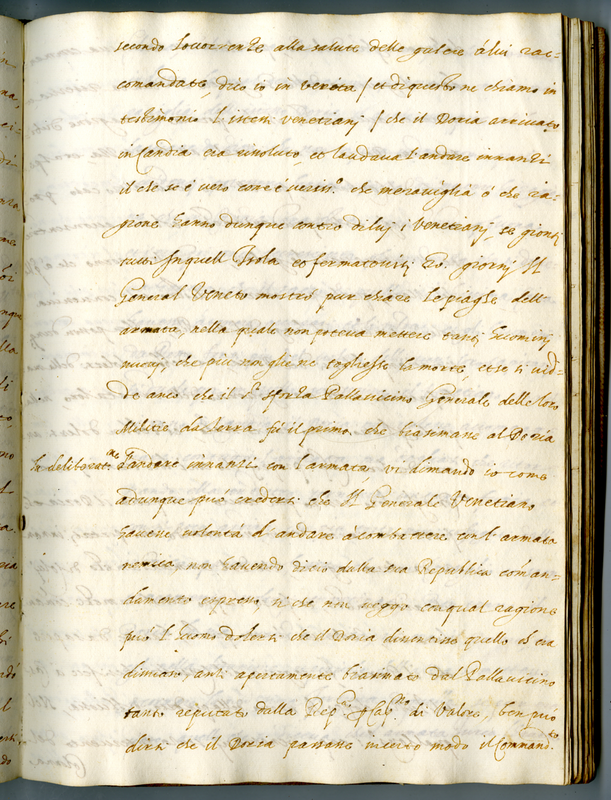 secondo l'occorrenze alla salute delle galere à lui rac-
comandate, dico io in verità / et di questo ne chiamo in
testimonio l'istessi venetianj / che il Doria arrivato
in Candia era risoluto, et laudava l'andare innanzi
il che se è vero come è veriss.º che meraviglia ò che ra-
gione hanno dunque contro di luj i Venetianj, se giontj
tutti in quell' Isola et fermatovisi giornj Il
General Veneto mostrò pur chiare le piaghe dell'
armata, nella quale non poteva mettere tantj huominj
nuovj, che più non gli ne togliesse la morte, et se si vid-
de anco che il S.r Sforza Pallavicino Generale delle loro
Militie da Terra fù il primo, che biasimasse al Doria
la deliberat.ne d'andare innanzi con l'armata, vi dimando io come
adunque può credersi che Il Generale Venetiano
havesse volontà d'andare à combattere con l'armata
nemica, non havendo di ciò dalla sua Republica coman-
damento espresso, si che non veggo con qual ragione
può l'huomo dolersi che il Doria dimentisse quello ch'era
dimisso, anzi apertamente biasmato dal Pallavicino
tanto reputato dalla Rep.ca di Valore, ben può
dirsi che il Doria passasse in certo modo il Command.to